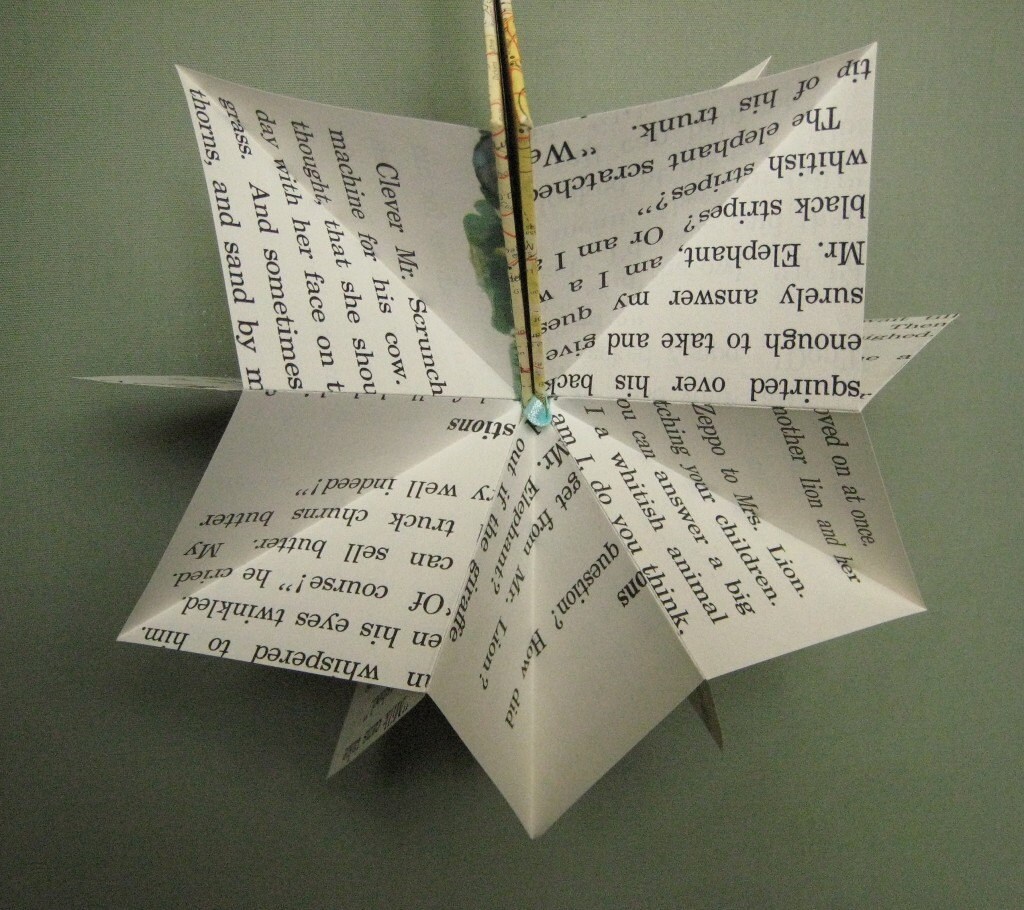 Clever Mr. Scrunch
machine for his cow.
thought, that she shou
day with her face on t
grass. And sometimes
thorns, and sand by m
squirted over his back
enough to take and give
surely answer my ques
Mr. Elephant, am I a w
black stripes? Or am I a
whitish stripes?”
The elephant scratched
tip of his trunk. “We
Then
ghed.
oved on at once.
nother lion and her
Zeppo to Mrs. Lion.
tching your children.
ou can answer a big
I a whitish animal
am I, do you think,
ons
question? How did
get from Mr. Lion?
Mr. Elephant?
out if the giraffe
whispered to him.
en his eyes twinkled.
“Of course!” he cried.
can sell butter. My
truck churns butter
ry well indeed!”
stions